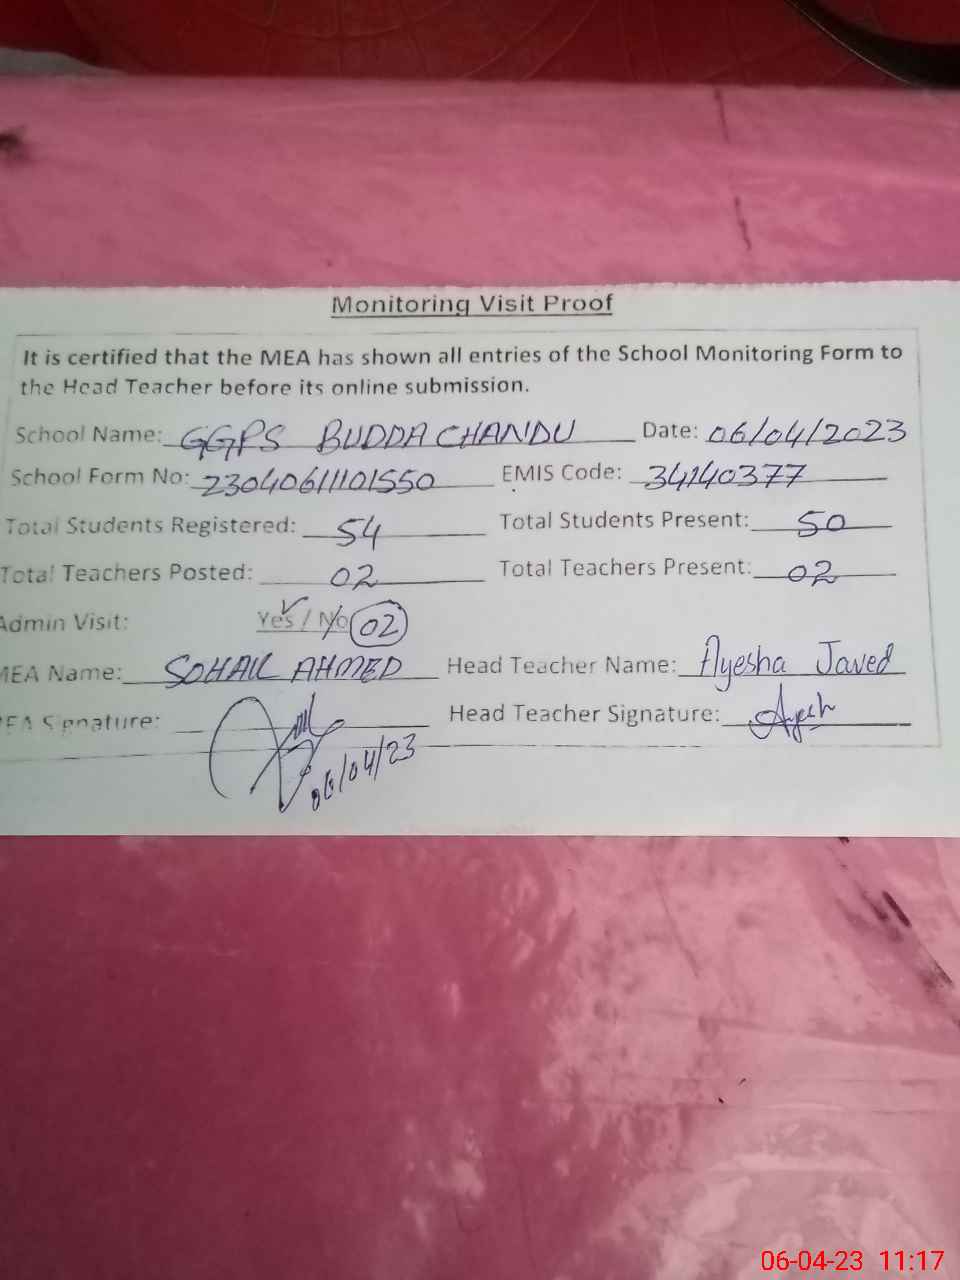 Monitoring Visit Proof
It is certified that the MEA has shown all entries of the School Monitoring Form to
the Head Teacher before its online submission.
School Name: GGPS BUDDA CHANDU Date: 06/04/2023
School Form No: 23040611101550 EMIS Code: 34140377
Total Students Registered: 54 Total Students Present: 50
Total Teachers Posted: 02 Total Teachers Present: 02
Admin Visit: Yes / No 02
MEA Name: SOHAIL AHMED Head Teacher Name: Ayesha Javed
MEA Signature: Head Teacher Signature: Ayesh
06/04/23
06-04-23 11:17